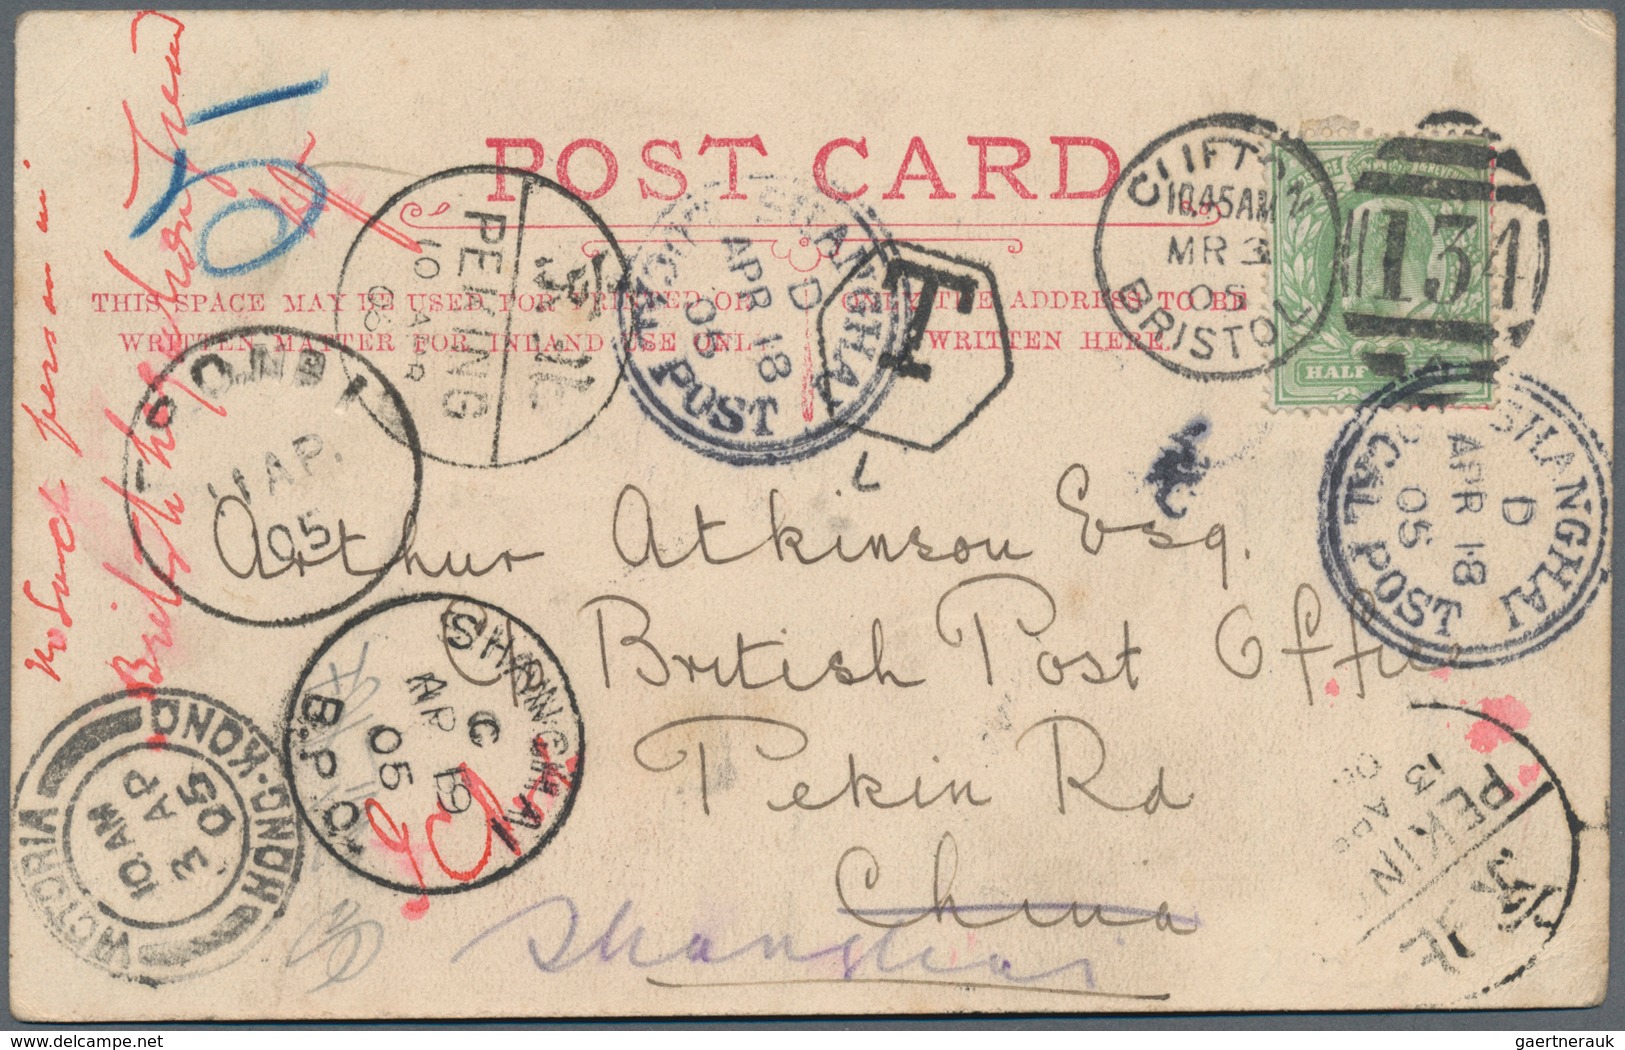 POST CARD
THIS SPACE MAY BE USED FOR PRINTED OR
WRITTEN MATTER FOR INLAND USE ONLY
ONLY THE ADDRESS TO BE
WRITTEN HERE.
CLIFTON
10.45AM
MR 3
05
BRISTOL
134
HALF
T
L
PEKING
10 APR
05
SHANGHAI
D
APR 18
05
LOCAL POST
SHANGHAI
D
APR 18
05
LOCAL POST
11 AP.
05
SHANGHAI
C
AP 19
05
B.P.O.
VICTORIA
HONG-KONG
10.AM
3 AP
05
PEKING
13 APR
05
no such person in
British
Arthur Atkinson Esq.
British Post Office
Pekin Rd
China
Shanghai
delcampe.net
gaertnerauk